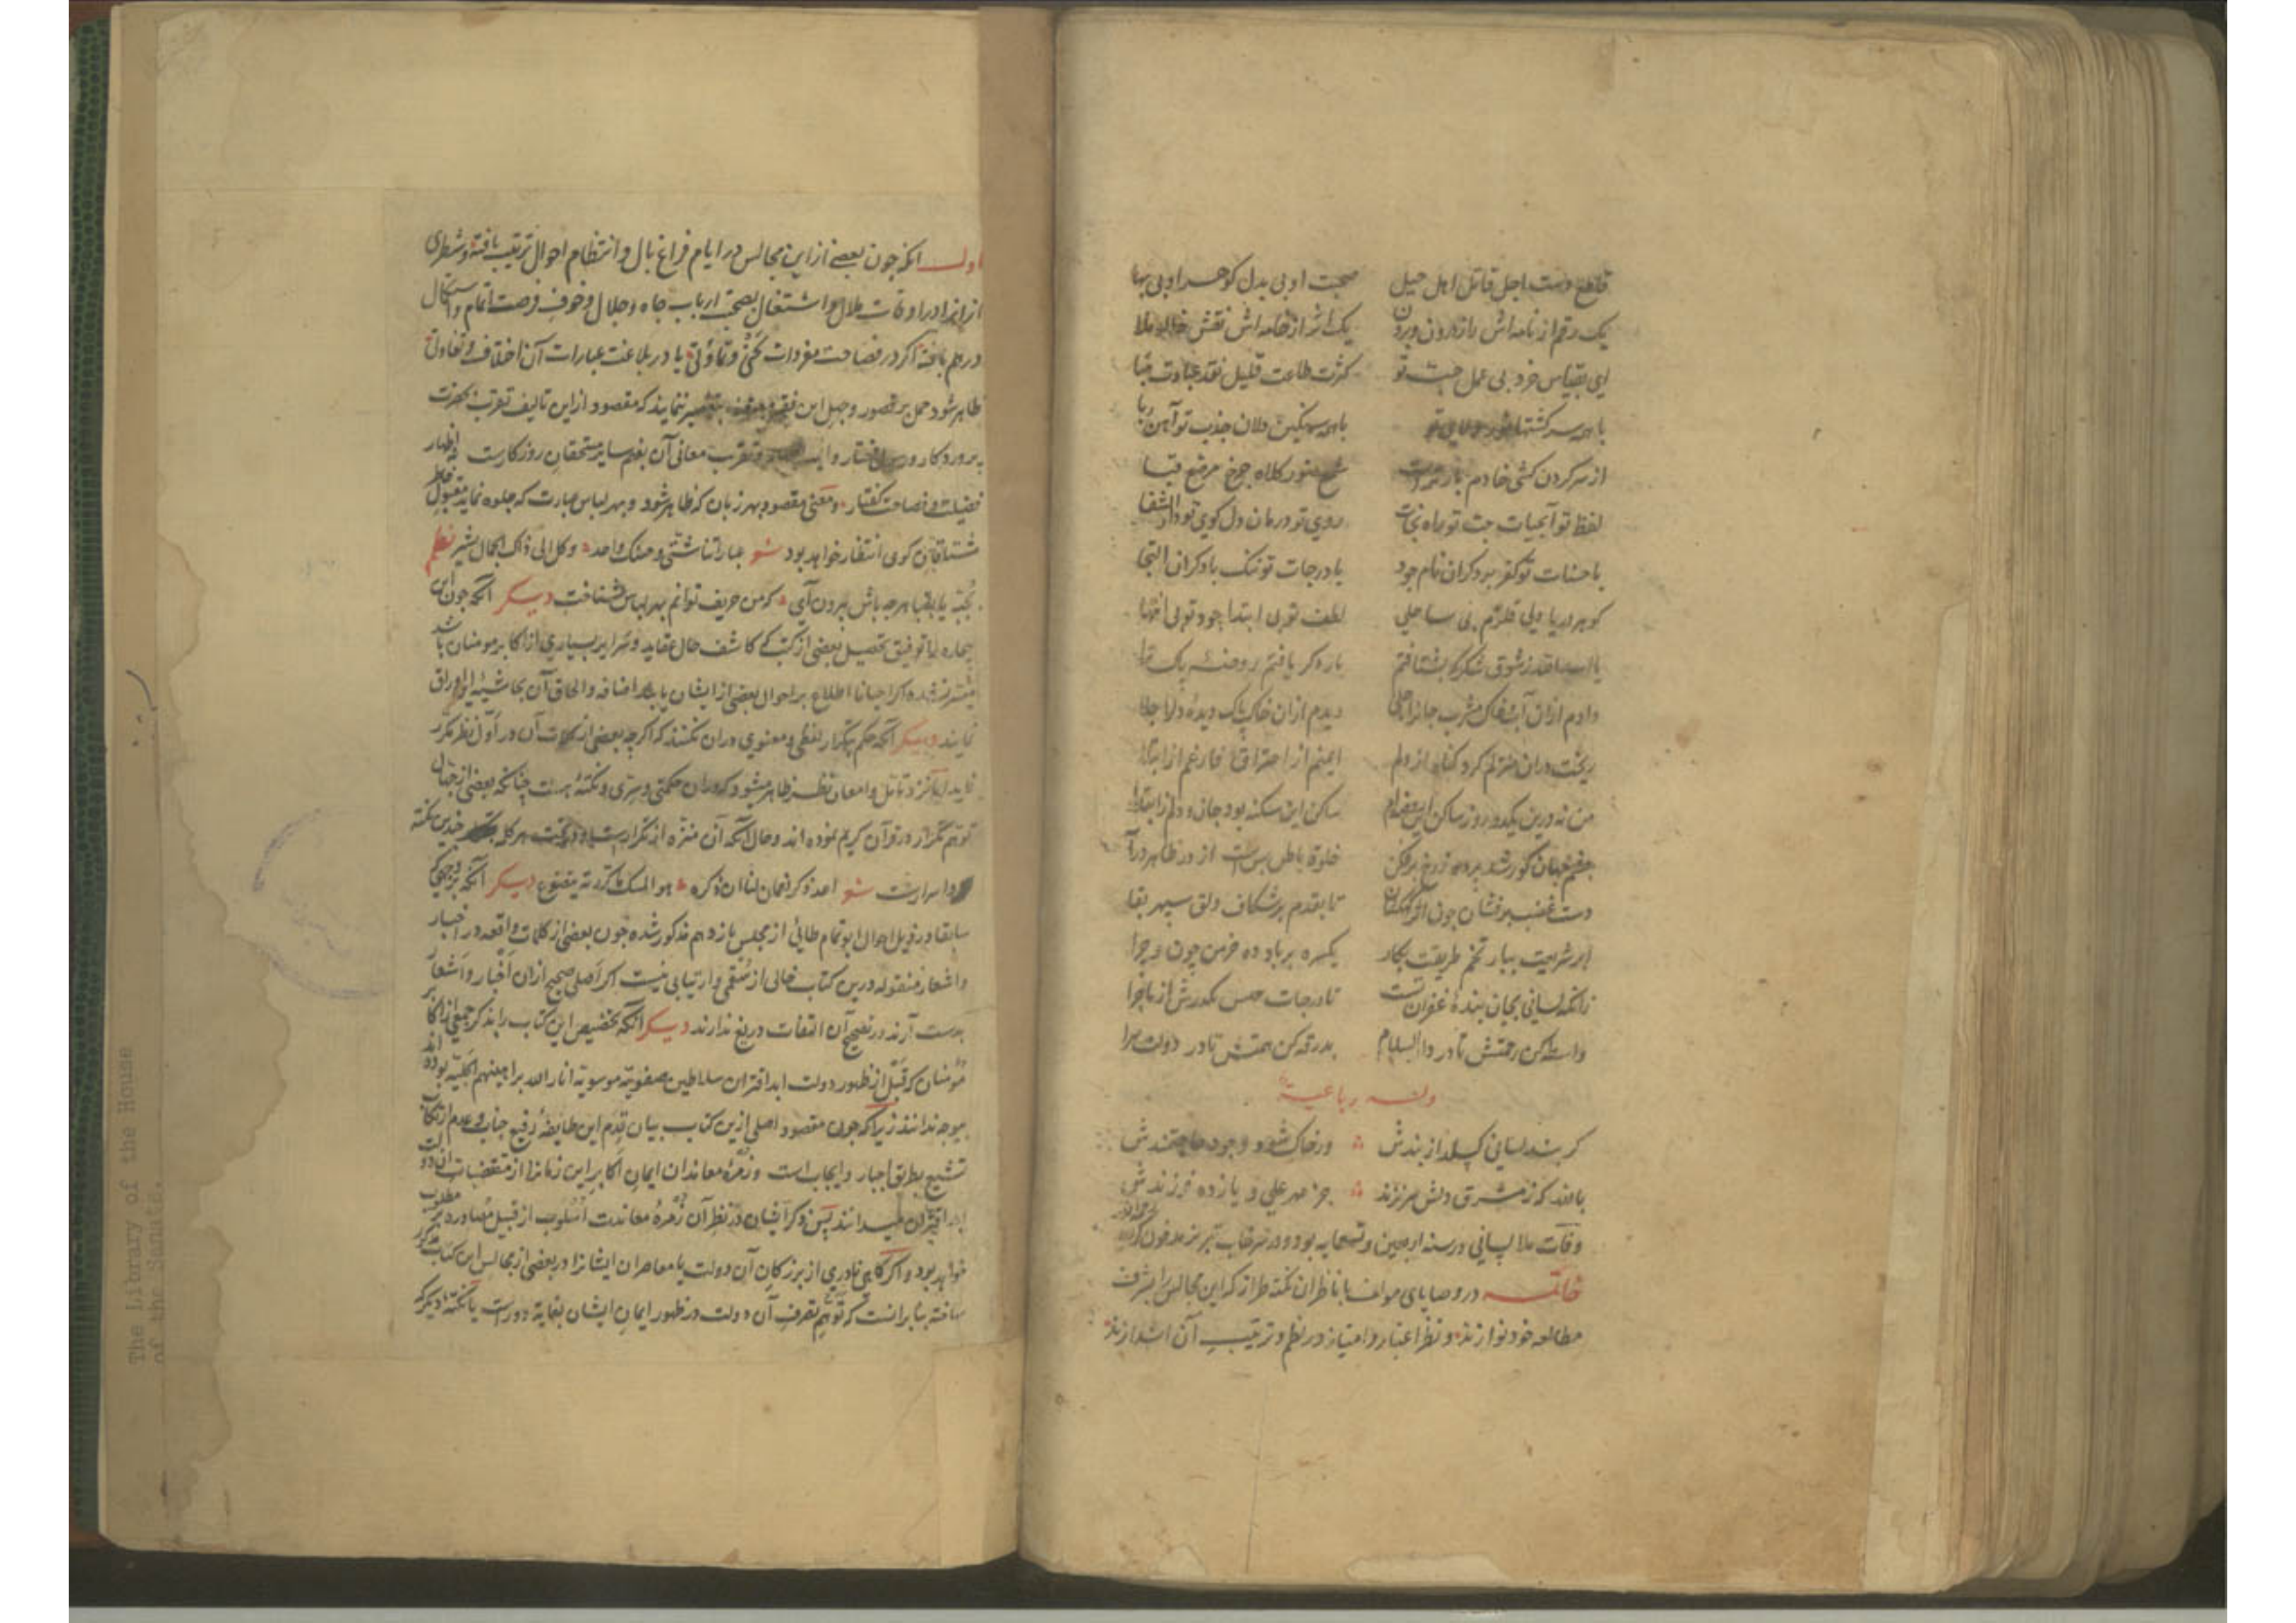 قاطع دست اجل قاتل اهل حیل صحبت او بی بدل کوهر او بی بها
یک رقم از نامه اش راز درون وبرون یک اثر از خامه اش نقش خلا و ملا
ای بقیاس خرد بی عمل حب تو کثرت طاعت قلیل نقد عبادت هبا
با همه سرکشتها با همه سنکین دلان جذب تو آهن ربا
از سر کردن کشی خادم شمع منور کلاه چرخ مرصع قبا
لفظ تو آبحیات حب تو راه نجات روی تو درمان دل کوی تو دار الشفا
با حسنات تو کفر بود کران نام جود با درجات تو ننک با دکران التجا
کوهر دریا دلی قلزم بی ساحلی لطف تو بی ابتدا جود تو بی انتها
یا اسد الله ز شوق شکر که بشتافتم باره کر یافتم روضه پاک ترا
دادم ازان آب خاک مشرب جانرا دیدم ازان خاک پاک دیده دلرا جلا
ریخت دران منزلم کرد کناه از دلم ایمنم از احتراق فارغم از ابتلا
من نه درین یکدو روز ساکن این ساکن این سکنه بود جان و دلم ز ابتدا
چشم جهان کور شد پرده ز رخ برفکن خلوة باطن بس است از در ظاهر درآ
دست غضب برفشان چون تا بقدم برشکاف دلق سپهر بقا
ابر شریعت ببار تخم طریقت بکار یکسره بر باد ده خرمن چون و چرا
زانکه لسانی بجان بنده غفران تست تا درجات مکذرش از ماجرا
واسطه کن رحمتش تا در دار السلام بدرقه کن همتش تا در دولت سرا
وله رباعیة
کر بند لسانی کسلد از بندش ور خاک شود وجود حاجتمندش
بالله که ز مشرق دلش سرنزند جز مهر علی و یازده فرزندش
وفات ملا لسانی در سنه اربعین و تسعمایه بود و در سرخاب تبریز مدفون کردید
خاتمه در وصایای مولف با ناظران نکته طراز که این مجالس را بشرف
مطالعه خود نوازند و نظر اعتبار و امتیاز در نظم و ترتیب آن اندازند
اول آنکه چون بعضی از این مجالس در ایام فراغ بال و انتظام احوال ترتیب یافته و شطری
ازانرا در اوقات ملال و اشتغال بصحبت ارباب جاه و جلال و خوف فرصت اتمام و استکمال
درهم بافته اکر در فصاحت مفردات یا در بلاغت عبارات آن اختلاف و تفاوتی
ظاهر شود حمل بر قصور و جهل این فقیر ننمایند که مقصود از این تالیف تقرب بحضرت
پروردکار و رسول مختار و تقریب معانی آن بفهم سایر مستحقان روزکارست نه اظهار
فضیلت و فصاحت کفتار و معنی مقصود بهر زبان که ظاهر شود و بهر لباس عبارت که جلوه نماید مقبول خاطر
مشتاقان کوی انتظار خواهد بود شعر عباراتنا شتی و حسنک واحد و کل الی ذاک الجمال یشیر نظم
بجبه یا بقبا هر چه باش بیرون آی که من حریف توانم بهر لباس شناخت دیکر آنکه چون این
بیچاره را توفیق تحصیل بعضی از کتب که کاشف حال عقاید و سرایر بسیاری از اکابر مومنان باشد
میسر نشده اکر احیانا اطلاع بر احوال بعضی از ایشان یابند اضافه و الحاق آن بحاشیه این اوراق
نمایند دیکر آنکه حکم بتکرار لفظی و معنوی دران نکنند که اکر چه بعضی از کلمات آن در اول نظر مکرر
نماید اما نزد تامل و امعان نظر ظاهر میشود که دران حکمتی و سری و نکتۀ هست چنانکه بعضی از جهال
توهم تکرار در قرآن کریم نموده اند و حال آنکه آن منزه از تکرارست و در تحت هر کلمه چندین نکته
و اسرارست شعر اعد ذکر نعمان لنا ان ذکره هو المسک ما کررته یتضوع دیکر آنکه بر وجهی که
سابقا در ذیل احوال ابو تمام طائی از مجلس یازدهم مذکور شده چون بعضی از کلمات واقعه در اخبار
و اشعار منقوله درین کتاب خالی از سقمی و ارتیابی نیست اکر اصلی صحیح ازان اخبار و اشعار
بدست آرند در تصحیح آن التفات دریغ ندارند دیکر آنکه تخصیص این کتاب را بذکر جمعی از اکابر
مؤمنان که قبل از ظهور دولت ابد اقتران سلاطین صفویه موسویه انار الله براهینهم الجلیه بوده اند
بیوجه ندانند زیرا که چون مقصود اصلی ازین کتاب بیان قدم این طایفۀ رفیع جناب و عدم ارتکاب
تشیع بطریق اجبار و ایجاب است و زمرۀ معاندان ایمان اکابر این زمانرا از مقتضیات آن دولت
ابد اقتران میدانند پس ذکر ایشان در نظر آن زمرۀ معاندت اسلوب از قبیل مصادره بر مطلوب
خواهد بود و اکر کاهی نادری از بزرکان آن دولت یا معاصران ایشانرا در بعضی از مجالس این کتاب مذکور
ساخته بنا برانست که توهم تصرف آن دولت در ظهور ایمان ایشان بغایة دورست یا نکتۀ دیکر که
The Library of the House
of the Senate.